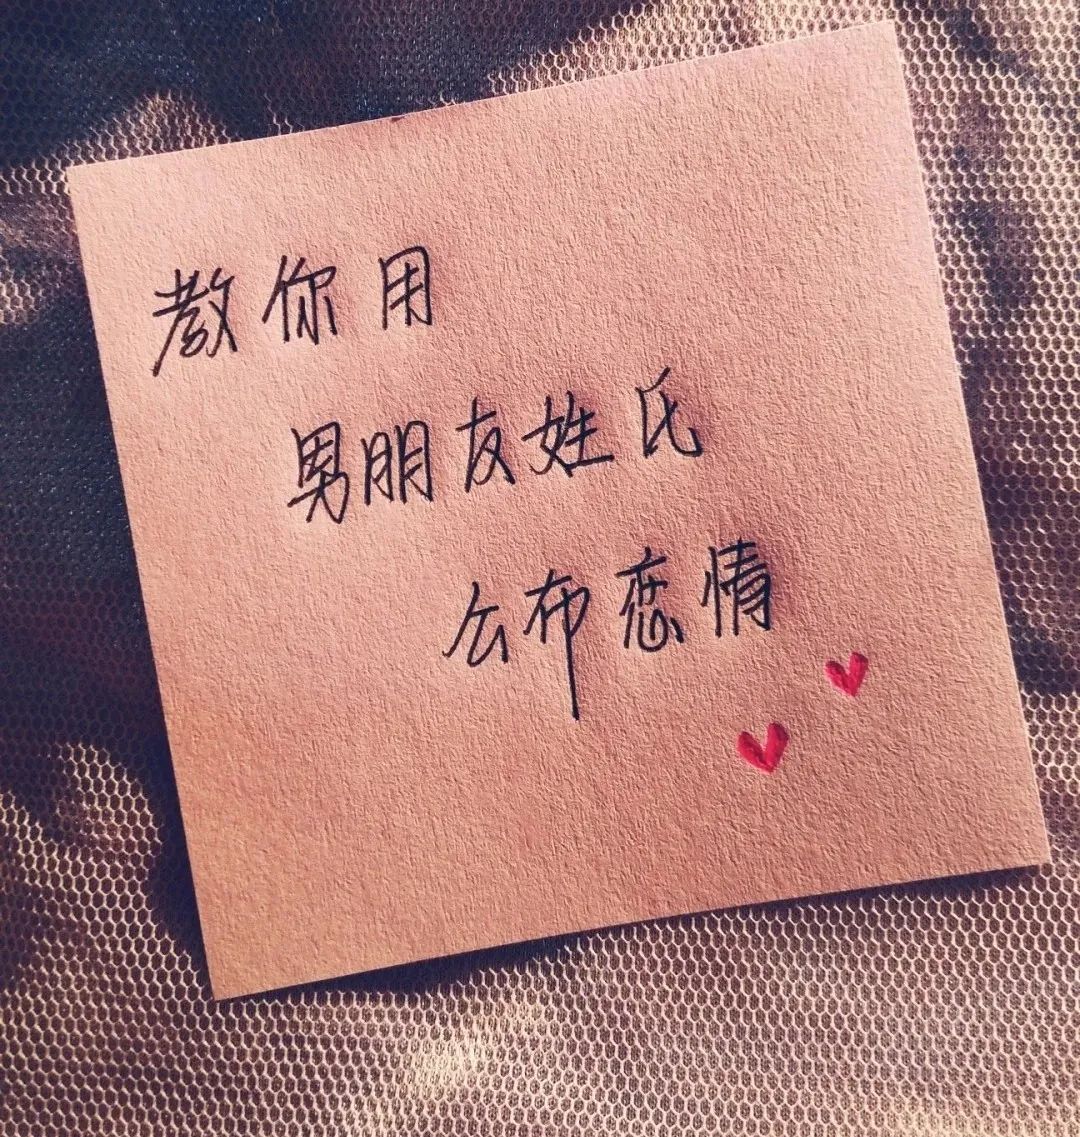 教你用
男朋友姓氏
公布恋情